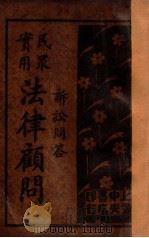 民眾
實用
法律顧問
訴訟問答